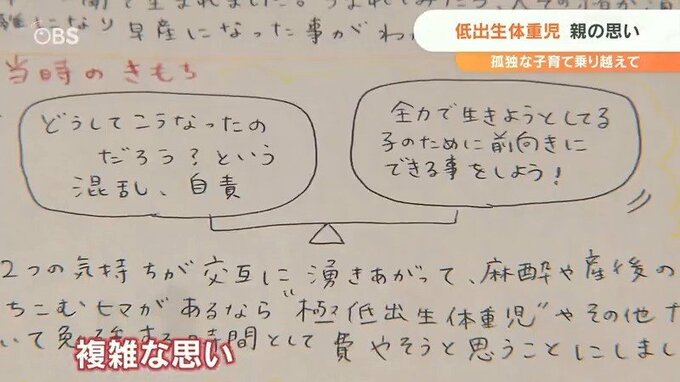 OBS
低出生体重児 親の思い
孤独な子育て乗り越えて
早産になった事がわか
当時のきもち
どうしてこうなったの
だろう?という
混乱し、自責
全力で生きようとしてる
子のために前向きに
できる事をしよう!
2つの気持ちが交互に湧きあがって、麻酔や産後の
ちこむヒマがあるなら"極低出生体重児"やその他
時間として費やそうと思うことにしまし
複雑な思い